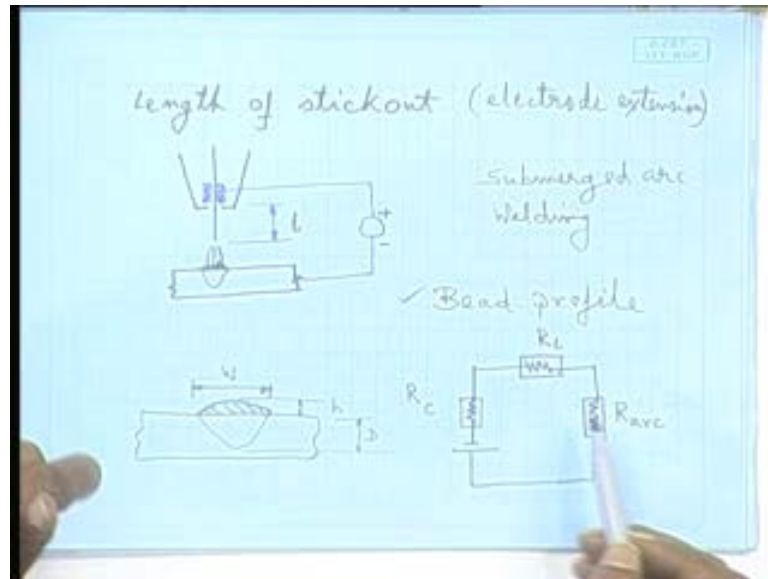 Length of stickout (electrode extension)
Submerged arc
Welding
+
l
-
✓ Bead profile
W
h
D
R_L
R_C
R_arc